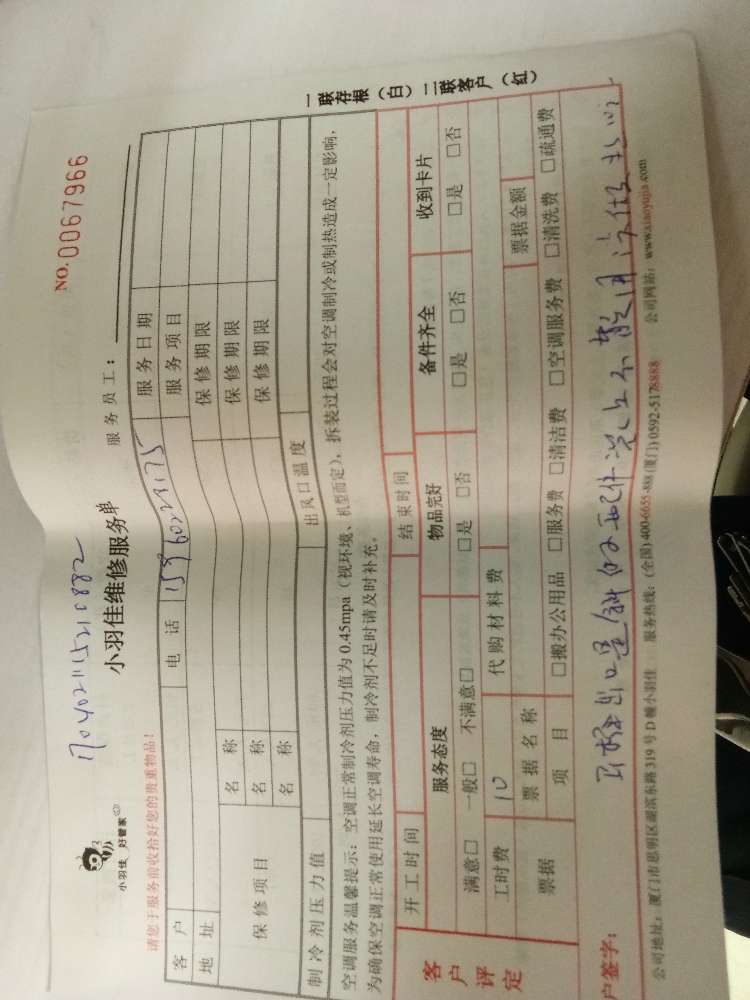 170402115210882
NO.0067966
小羽佳 好管家
小羽佳维修服务单
请您于服务前收拾好您的贵重物品!
服务员工:
客户
电话
服务日期
地址
服务项目
保修项目
名称
保修期限
名称
保修期限
名称
保修期限
制冷剂压力值
出风口温度
空调服务温馨提示:空调正常制冷剂压力值为0.45mpa(视环境、机型而定),拆装过程会对空调制冷或制热造成一定影响,
为确保空调正常使用延长空调寿命,制冷剂不足时请及时补充。
一联存根(白)二联客户(红)
客户评定
开工时间
结束时间
服务态度
物品完好
备件齐全
收到卡片
满意□ 一般□ 不满意□
□是 □否
□是 □否
□是 □否
工时费
10
代购材料费
票据
票据名称
票据金额
项目
□搬办公用品 □服务费 □清洁费 □空调服务费 □清洗费 □疏通费
户签字:
公司地址:厦门市思明区湖滨东路319号D幢小羽佳 服务热线:(全国)400-6655-888(厦门)0592-5178888 公司网站:www.xiaoyujia.com